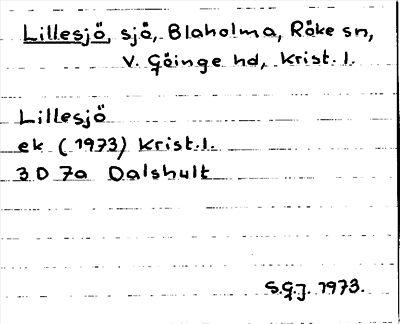 Lillesjö, sjö, Blaholma, Röke sn,
V. Göinge hd, Krist. l.
Lillesjö
ek (1973) Krist. l.
3 D 7a Dalshult
S.G.J. 1973.